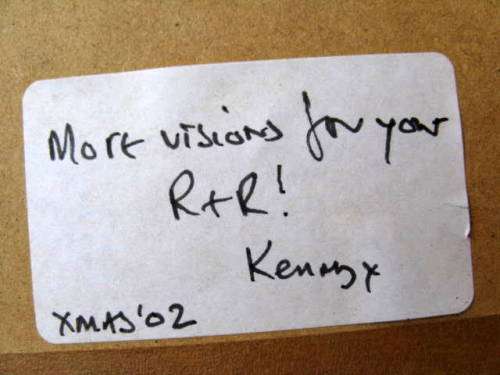 More visions for your
R+R!
Kenny x
XMAS'02